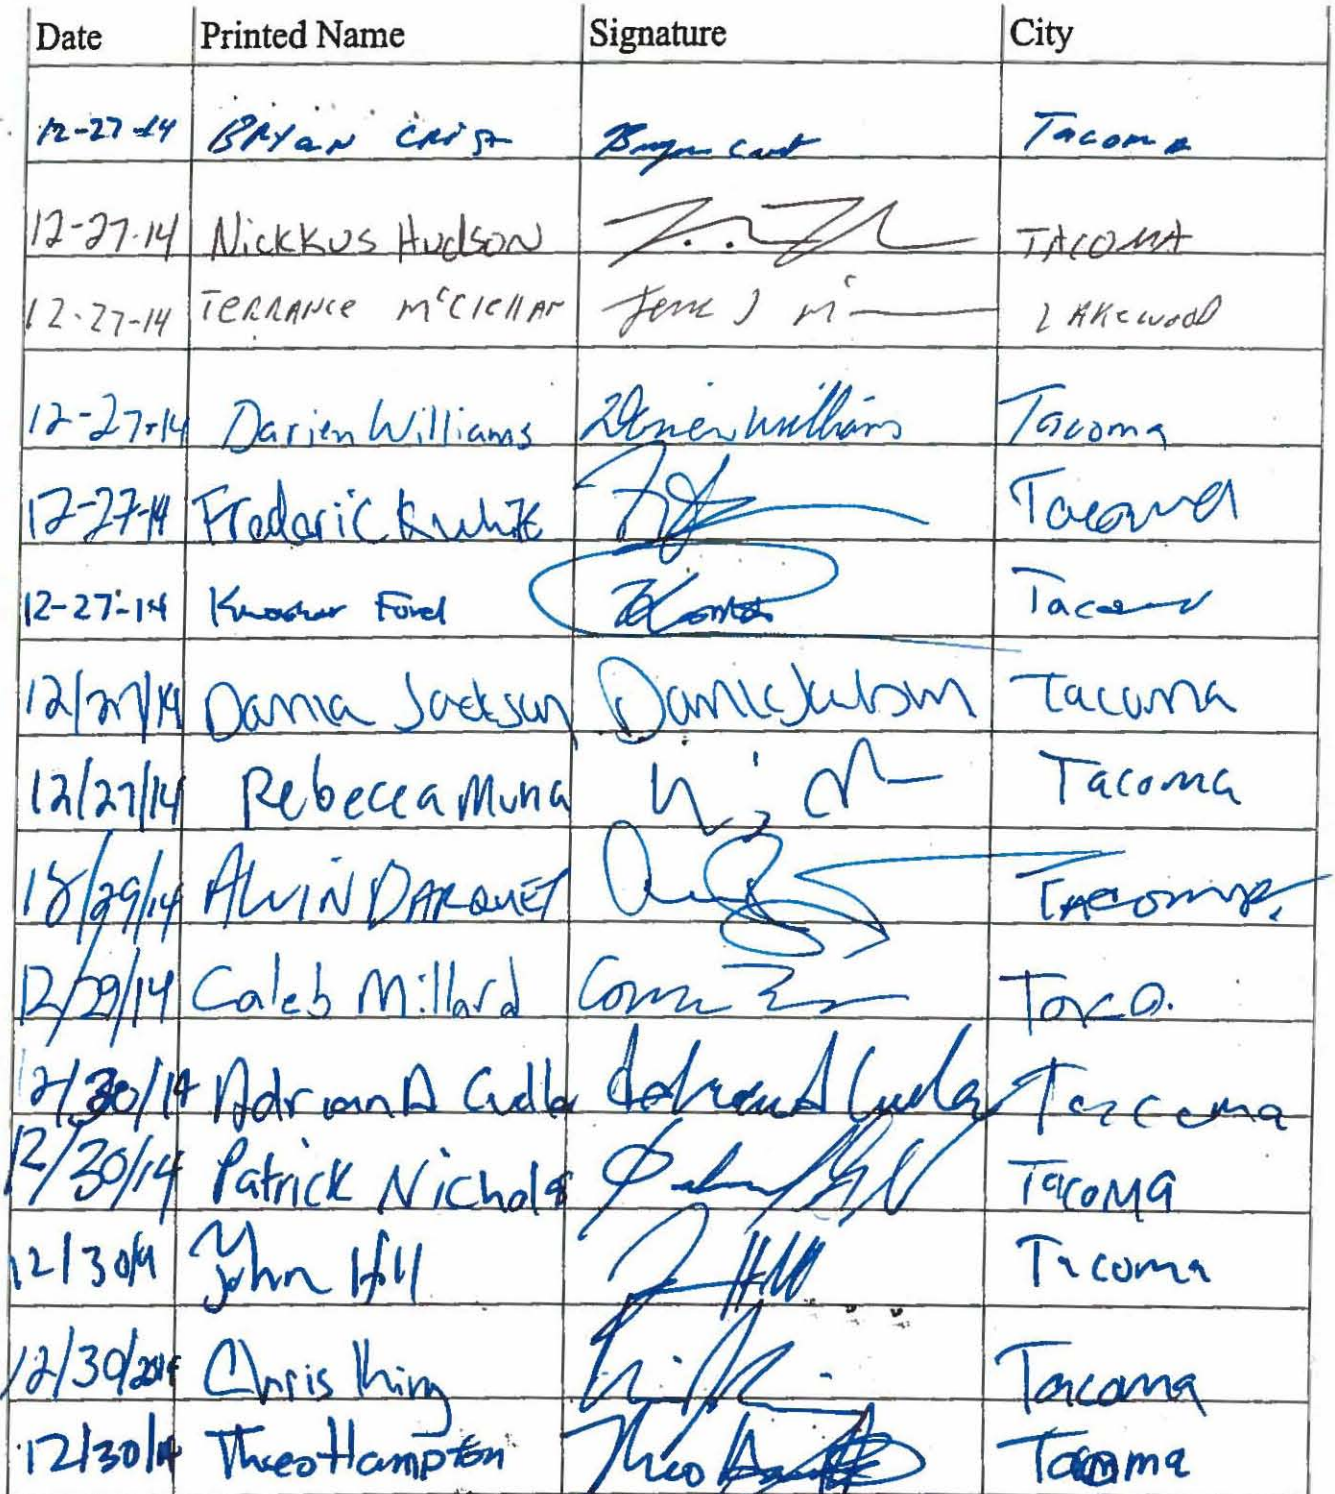 Date Printed Name Signature City
12-27-14 BRYAN CRIST Tacoma
12-27-14 NickKUS HUDSON TACOMA
12-27-14 TERRANCE McClellAN LAKewood
12-27-14 Darien Williams Darien Williams Tacoma
12-27-14 Frederick White Tacoma
12-27-14 Ford Tacoma
12/27/14 Dania Jackson Tacoma
12/27/14 Rebecca Muna Tacoma
/29/14 AlVIN DARQUET TACOMA
12/29/14 Caleb Millard Taco.
12/30/14 Adrian A Tacoma
12/30/14 Patrick Nichols TacoMa
12/30/14 John Hill Hill Tacoma
12/30/2014 Chris King Tacoma
12/30/14 Theo Hampton Theo Tacoma